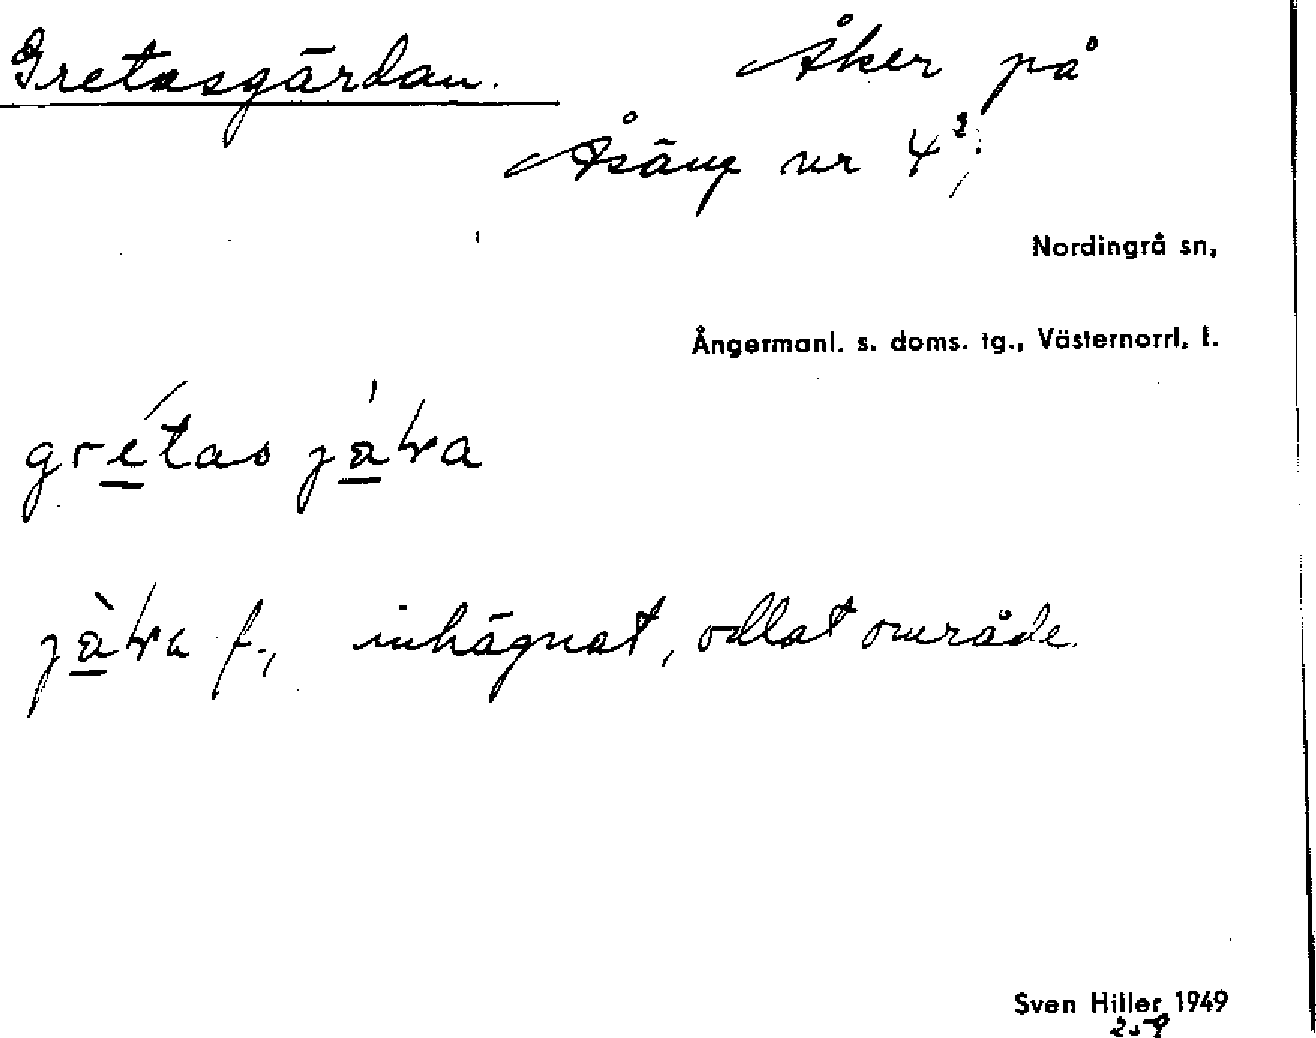 Gretasgärdan. Åker på
Åsäng nr 4²;
Nordingrå sn,
Ångermanl. s. doms. tg., Västernorrl. l.
inhägnat, odlat område.
Sven Hiller 1949